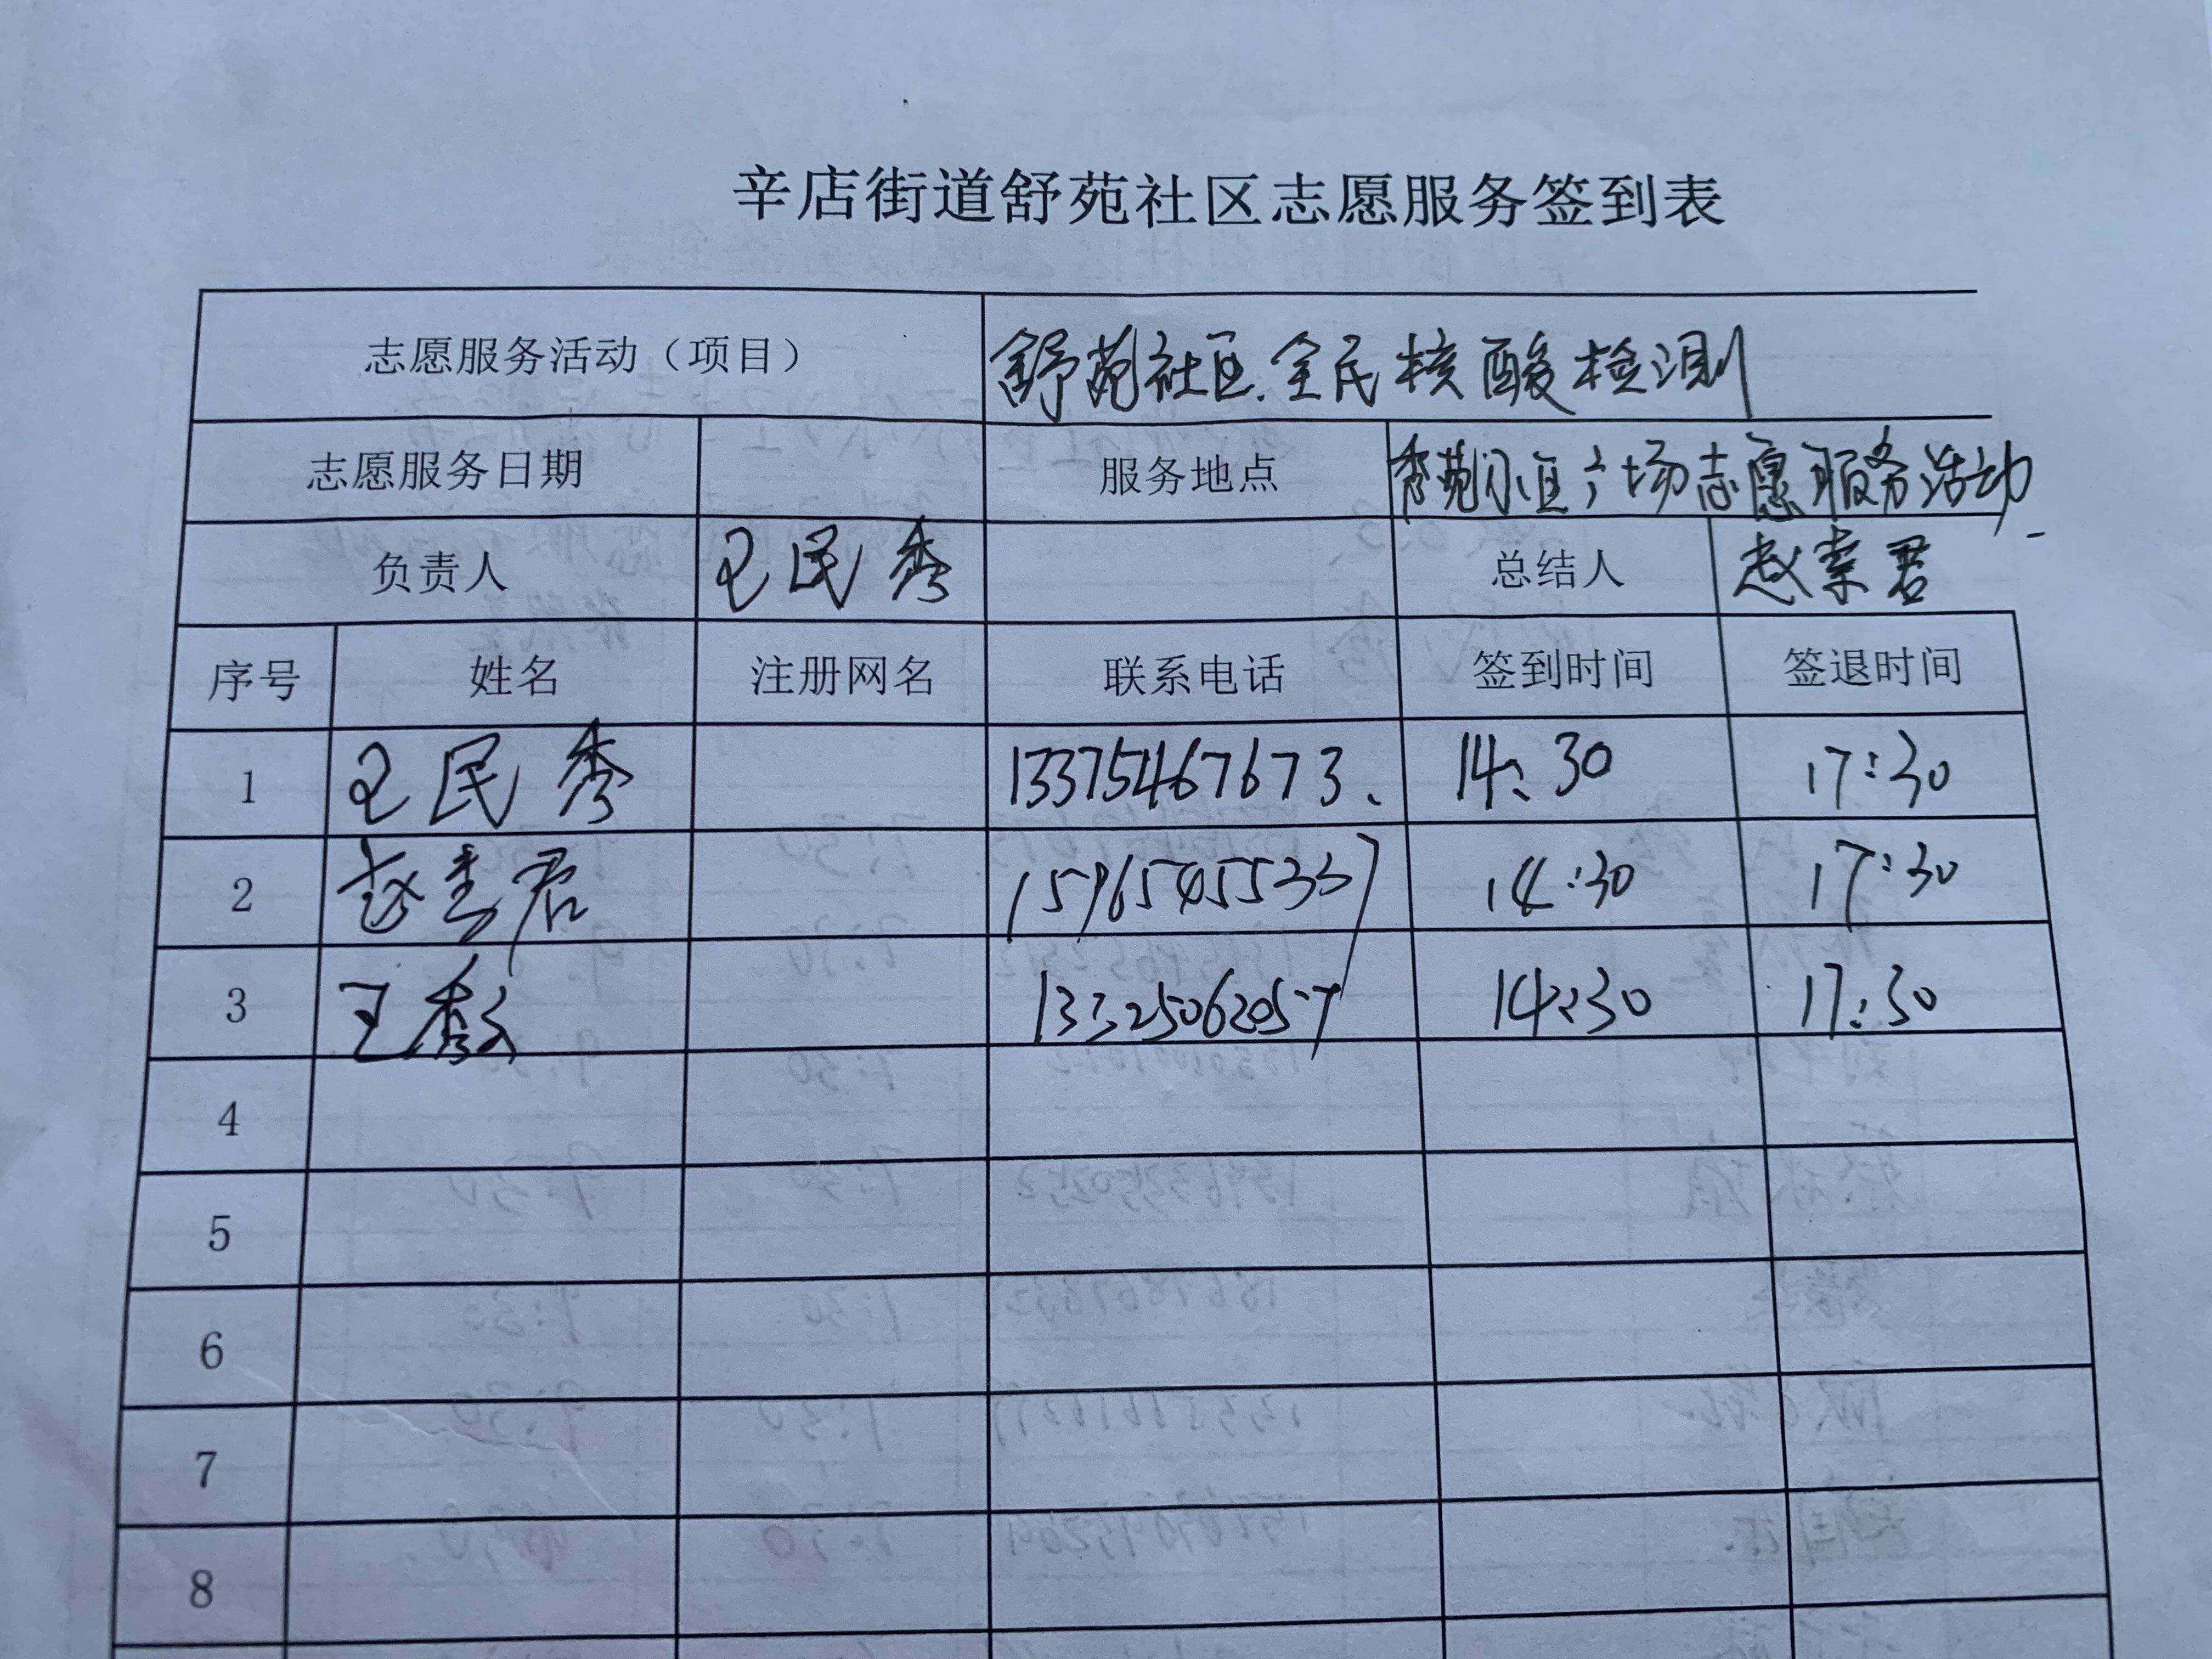 辛店街道舒苑社区志愿服务签到表
志愿服务活动（项目） 舒苑社区全民核酸检测
志愿服务日期 服务地点 秀苑小区广场志愿服务活动
负责人 王民秀 总结人 赵素君
序号 姓名 注册网名 联系电话 签到时间 签退时间
1 王民秀 13375467673 14:30 17:30
2 赵素君 15965455337 14:30 17:30
3 王秀 13325062057 14:30 17:30
4
5
6
7
8